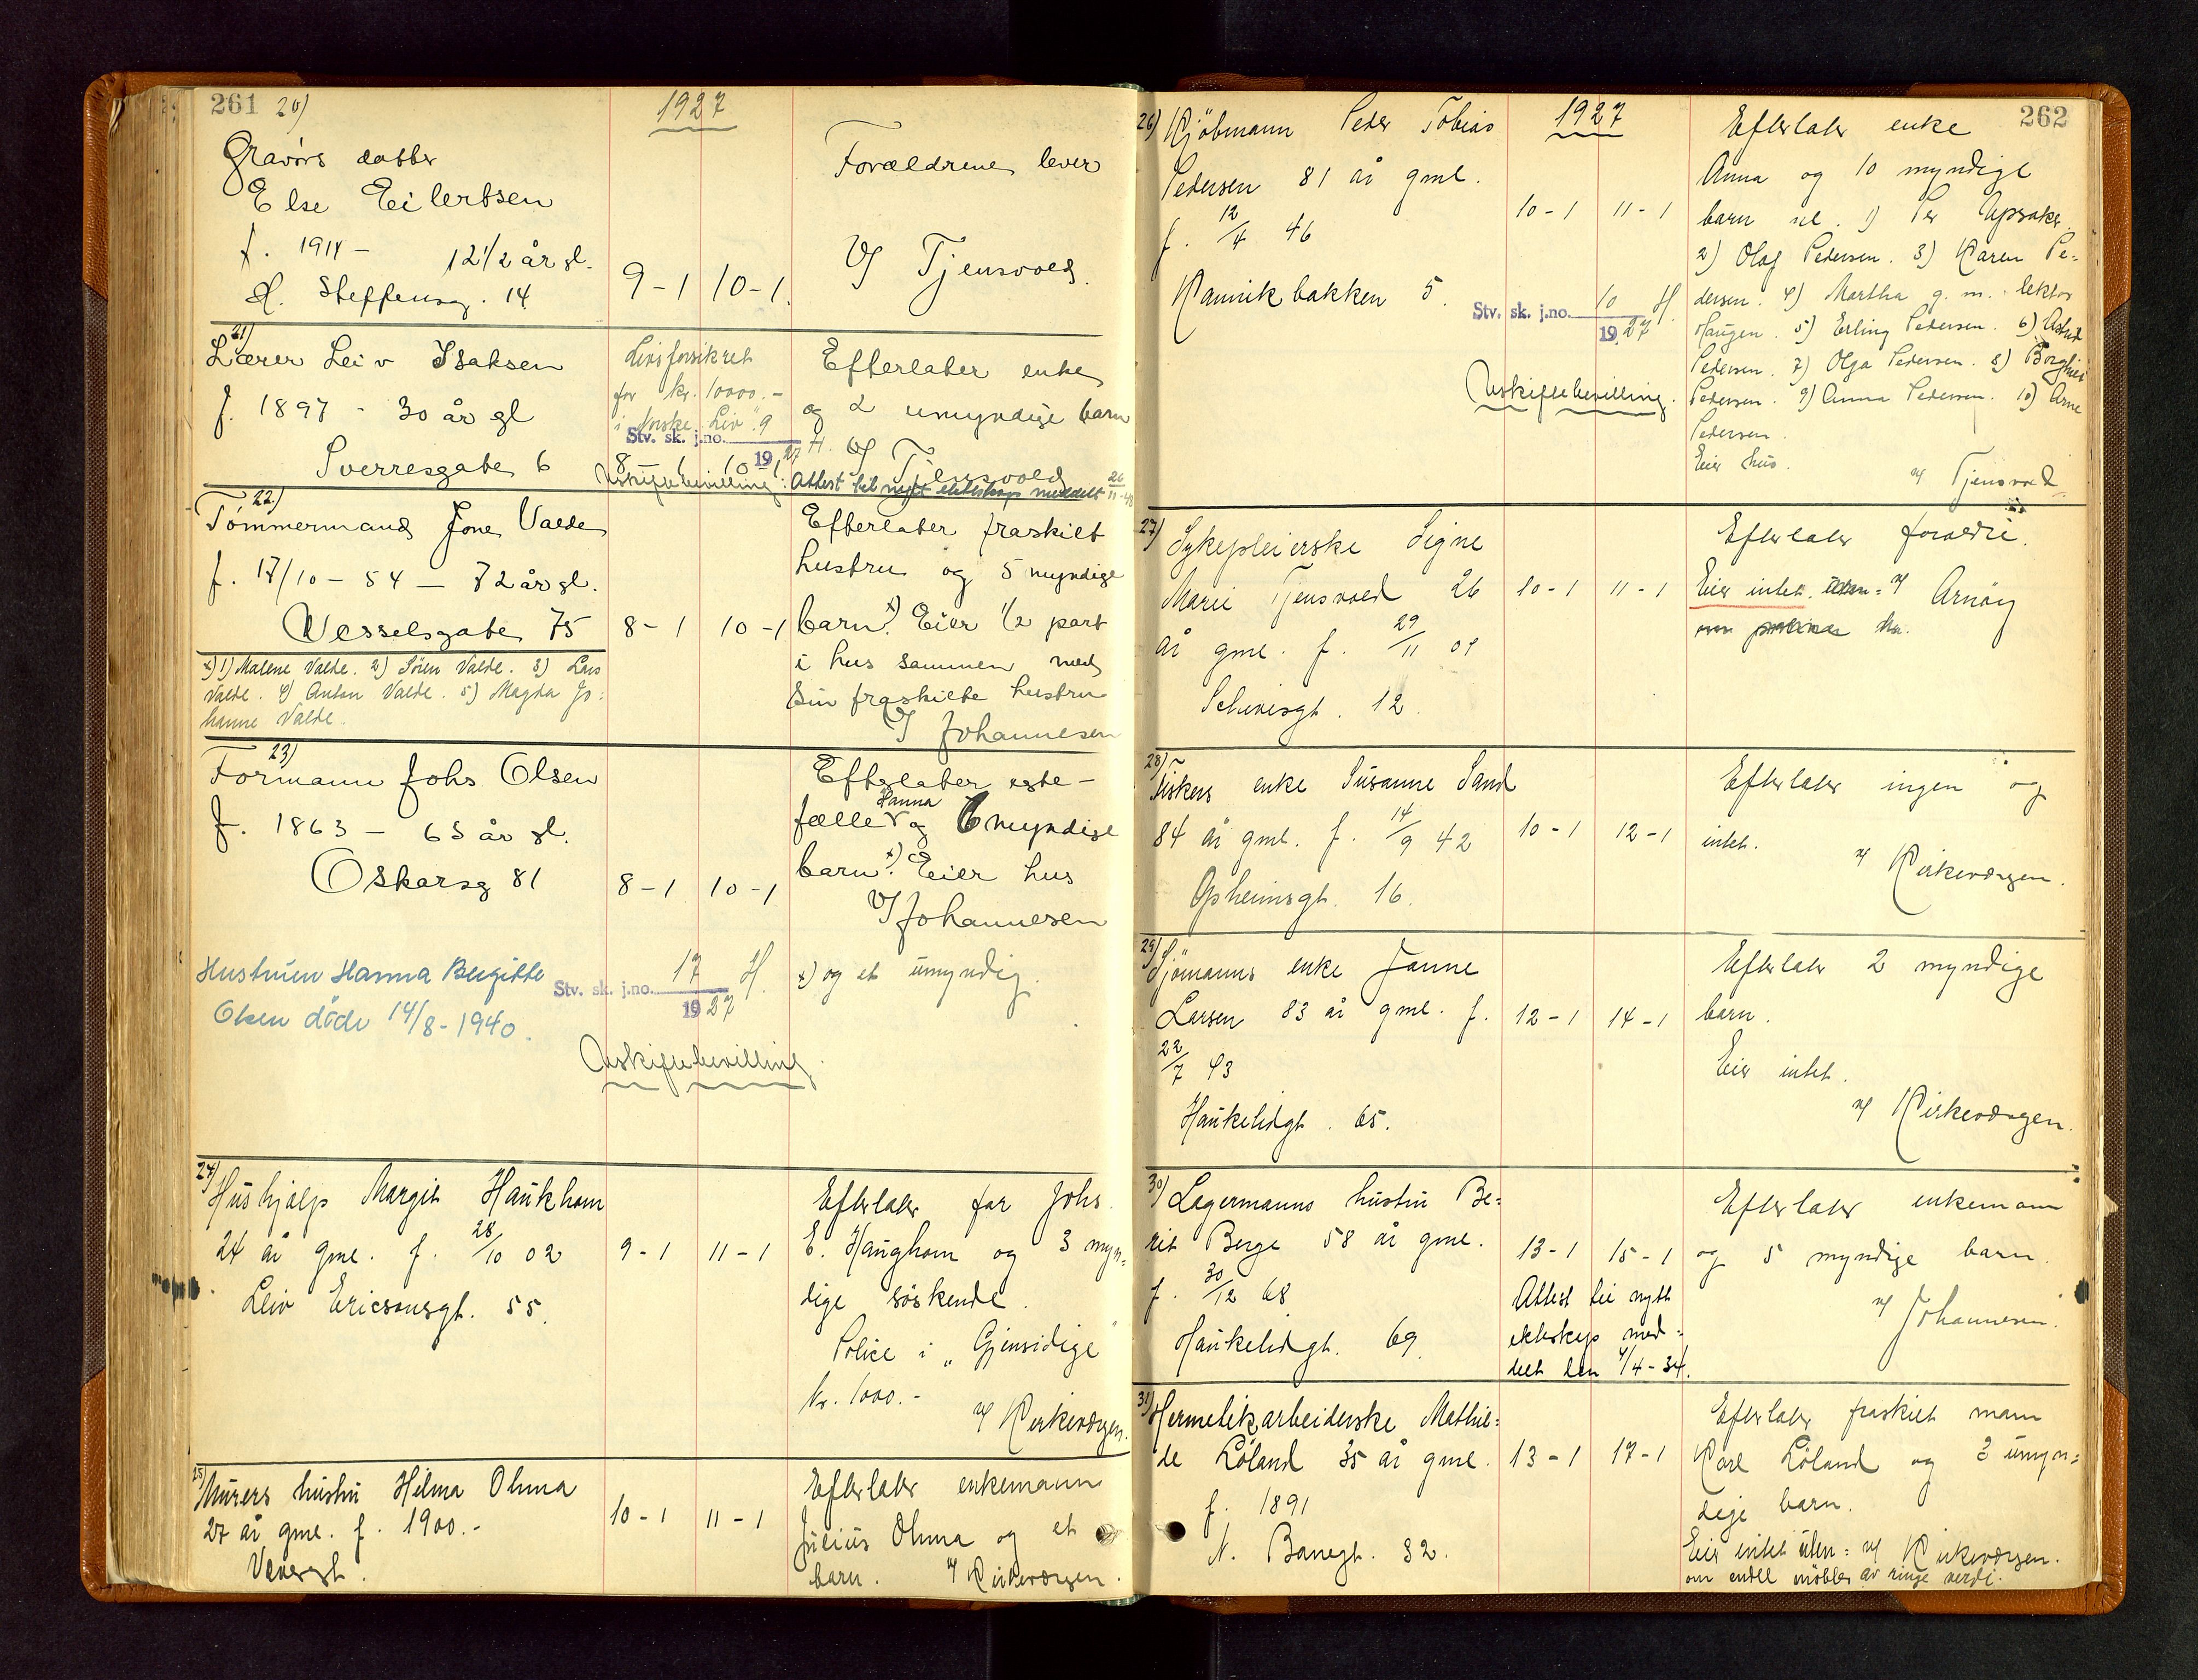 261 20)
1927
Gravörs datter
Else Eilertsen
f. 1914 - 12 1/2 år gl.
H. Steffensg. 14
9-1 10-1.
Forældrene lever
v/ Tjensvold.
21)
Lærer Leiv Isaksen
f. 1897 - 30 år gl
Sverresgate 6
Livsforsikret
for kr. 10000.-
i Norske Liv. 9
Stv. sk. j.no.
1927 H.
8-1 10-1
Uskiftebevilling.
Efterlater enke
og 2 umyndige barn
v/ Tjensvold
Attest til nytt ekteskap meddelt 26/11-48
22)
Tömmermand Jone Valde
f. 17/10 - 54 - 72 år gl.
Vesselsgate 75
8-1 10-1
x) 1) Malene Valde. 2) Sören Valde. 3) Lars
Valde. 4) Anton Valde. 5) Magda Jo:
hanne Valde.
Efterlater fraskilt
hustru og 5 myndige
barn x). Eier 1/2 part
i hus sammen med
sin fraskilte hustru
v/ Johannesen
23)
Formann Johs Olsen
f. 1863 - 63 år gl.
Oskarsg 81
8-1 10-1
Efterlater egte-
Hanna
fælle v og 6 myndige
barn x). Eier hus
v/ Johannesen
Hustruen Hanna Bergitte
Olsen döde 14/8-1940.
Stv. sk. j.no. 17 H.
1927
x) og et umyndig.
Uskiftebevilling.
24)
Hushjælp Margit Haukhom
24 år gml. f. 28/10 02
Leiv Ericsonsgt. 55.
9-1 11-1
Efterlater far Johs.
E. Haughom og 3 myn=
dige söskende.
Police i „Gjensidige"
kr. 1000.-
v/ Kirkeværgen.
25)
Murers hustru Hilma Ohma
27 år gml. f. 1900.-
Vevergt.
10-1 11-1
Efterlater enkemann
Julius Ohma og et
barn. v/ Kirkeværgen.
262
1927
26) Kjöbmann Peder Tobias
Pedersen 81 år gml.
f. 12/4 46
Kannikbakken 5.
10-1 11-1
Stv. sk. j.no. 10 H.
1927
Uskiftebevilling.
Efterlater enke
Anna og 10 myndige
barn nl. 1) Per Upsaker.
2) Olaf Pedersen. 3) Karen Pe=
dersen. 4) Martha g. m. lektor
Haugen. 5) Erling Pedersen. 6) Astrid
Pedersen. 7) Olga Pedersen. 8) Borghild
Pedersen. 9) Anna Pedersen. 10) Arne
Pedersen.
Eier hus.
v/ Tjensvold
27)
Sykepleierske Signe
Marie Tjensvold 26
år gml. f. 29/11 01
Schivesgt. 12.
10-1 11-1
Efterlater foreldre.
Eier intet. v/ Arnöy
28)
Fiskers enke Susanne Sand
84 år gml. f. 14/9 42
Opheimsgt. 16.
10-1 12-1
Efterlater ingen og
intet.
v/ Kirkeværgen.
29)
Sjömanns enke Janne
Larsen 83 år gml. f.
22/7 43
Haukelidgt. 65.
12-1 14-1
Efterlater 2 myndige
barn.
Eier intet.
v/ Kirkeværgen.
30) Lagermanns hustru Be=
rit Berge 58 år gml.
f. 30/12 68
Haukelidgt. 69
13-1 15-1
Attest til nytt
ekteskap med=
delt den 4/4-34.
Efterlater enkemann
og 5 myndige barn.
v/ Johannesen.
31)
Hermetikarbeiderske Mathil=
de Löland 35 år gml.
f. 1891
N. Banegt. 32.
13-1 17-1
Efterlater fraskilt mann
Karl Löland og 3 umyn=
dige barn.
Eier intet uten= v/ Kirkeværgen.
om endel möbler av ringe verdi.